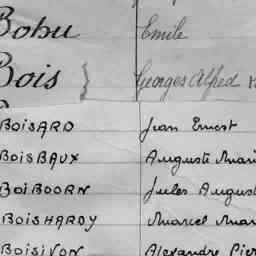 Bohu Emile
Bois } Georges Alfred
BOISARD Jean Ernest
BOISBAUX Auguste Mari
BOIBOORN Jules August
BOISHARDY Marcel Mar
BOISIVON Alexandre Pier